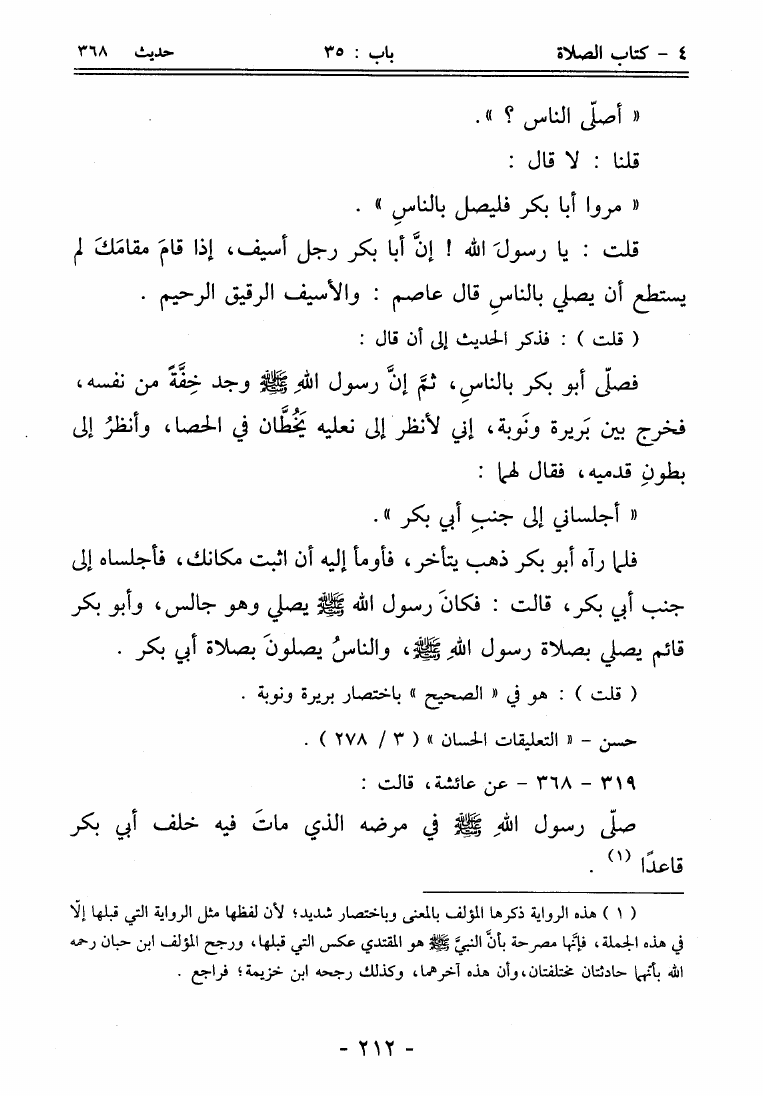 ٤ - كتاب الصلاة باب : ٣٥ حديث ٣٦٨
« أصلّى الناس ؟ » .
قلنا : لا قال :
« مروا أبا بكر فليصل بالناسِ » .
قلت : يا رسولَ الله ! إنَّ أبا بكر رجل أسيف، إذا قامَ مقامَكَ لم
يستطع أن يصلي بالناسِ قال عاصم : والأسيف الرقيق الرحيم .
( قلت ) : فذكر الحديث إلى أن قال :
فصلّى أبو بكر بالناسِ، ثمَّ إنَّ رسول اللهِ ﷺ وجد خِفَّةً من نفسه،
فخرج بين بَريرة ونَوبة، إني لأنظر إلى نعليه يَخُطَّان في الحصا، وأنظرُ إلى
بطونِ قدميه، فقال لهما :
« أجلساني إلى جنبِ أبي بكر ».
فلما رآه أبو بكر ذهب يتأخر، فأومأ إليه أن اثبت مكانك، فأجلساه إلى
جنب أبي بكر، قالت : فكانَ رسول الله ﷺ يصلي وهو جالس، وأبو بكر
قائم يصلي بصلاة رسول اللهِ ﷺ، والناسُ يصلونَ بصلاة أبي بكر .
( قلت ) : هو في « الصحيح » باختصار بريرة ونوبة .
حسن - « التعليقات الحسان » ( ٣ / ٢٧٨ ) .
٣١٩ - ٣٦٨ - عن عائشة، قالت :
صلّى رسول اللهِ ﷺ في مرضه الذي ماتَ فيه خلف أبي بكر
قاعدًا (١) .
( ١ ) هذه الرواية ذكرها المؤلف بالمعنى وباختصار شديد؛ لأن لفظها مثل الرواية التي قبلها إلّا
في هذه الجملة، فإنَّها مصرحة بأنَّ النبيَّ ﷺ هو المقتدي عكس التي قبلها، ورجح المؤلف ابن حبان رحمه
الله بأنَّهما حادثتان مختلفتان، وأن هذه آخرهما، وكذلك رجحه ابن خزيمة؛ فراجع .
- ٢١٢ -